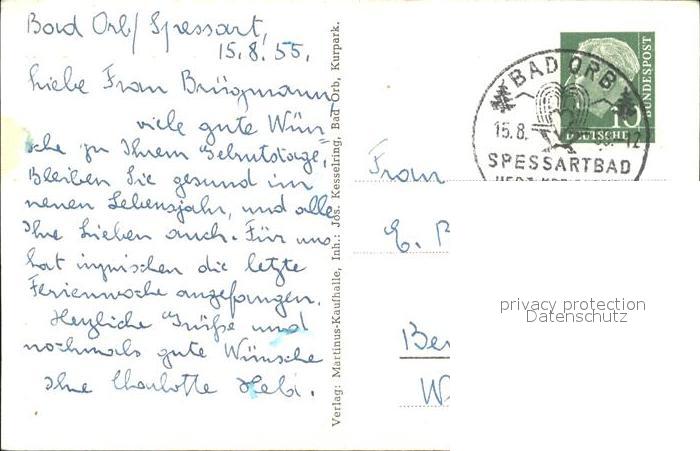 Bad Orb/Spessart,
15.8.55.
Liebe Frau Brüggmann,
viele gute Wün-
sche zu Ihrem Geburtstage,
Bleiben Sie gesund im
neuen Lebensjahr, und alle
Ihre Lieben auch. Für uns
hat inzwischen die letzte
Ferienwoche angefangen.
Herzliche Grüße und
nochmals gute Wünsche
Ihre Charlotte Held.
Verlag: Martinus-Kaufhalle, Inh.: Jos. Kesselring, Bad Orb, Kurpark.
BAD ORB
15.8.
12
SPESSARTBAD
10
DEUTSCHE
BUNDESPOST
Frau
E.
Be
W
privacy protection
Datenschutz